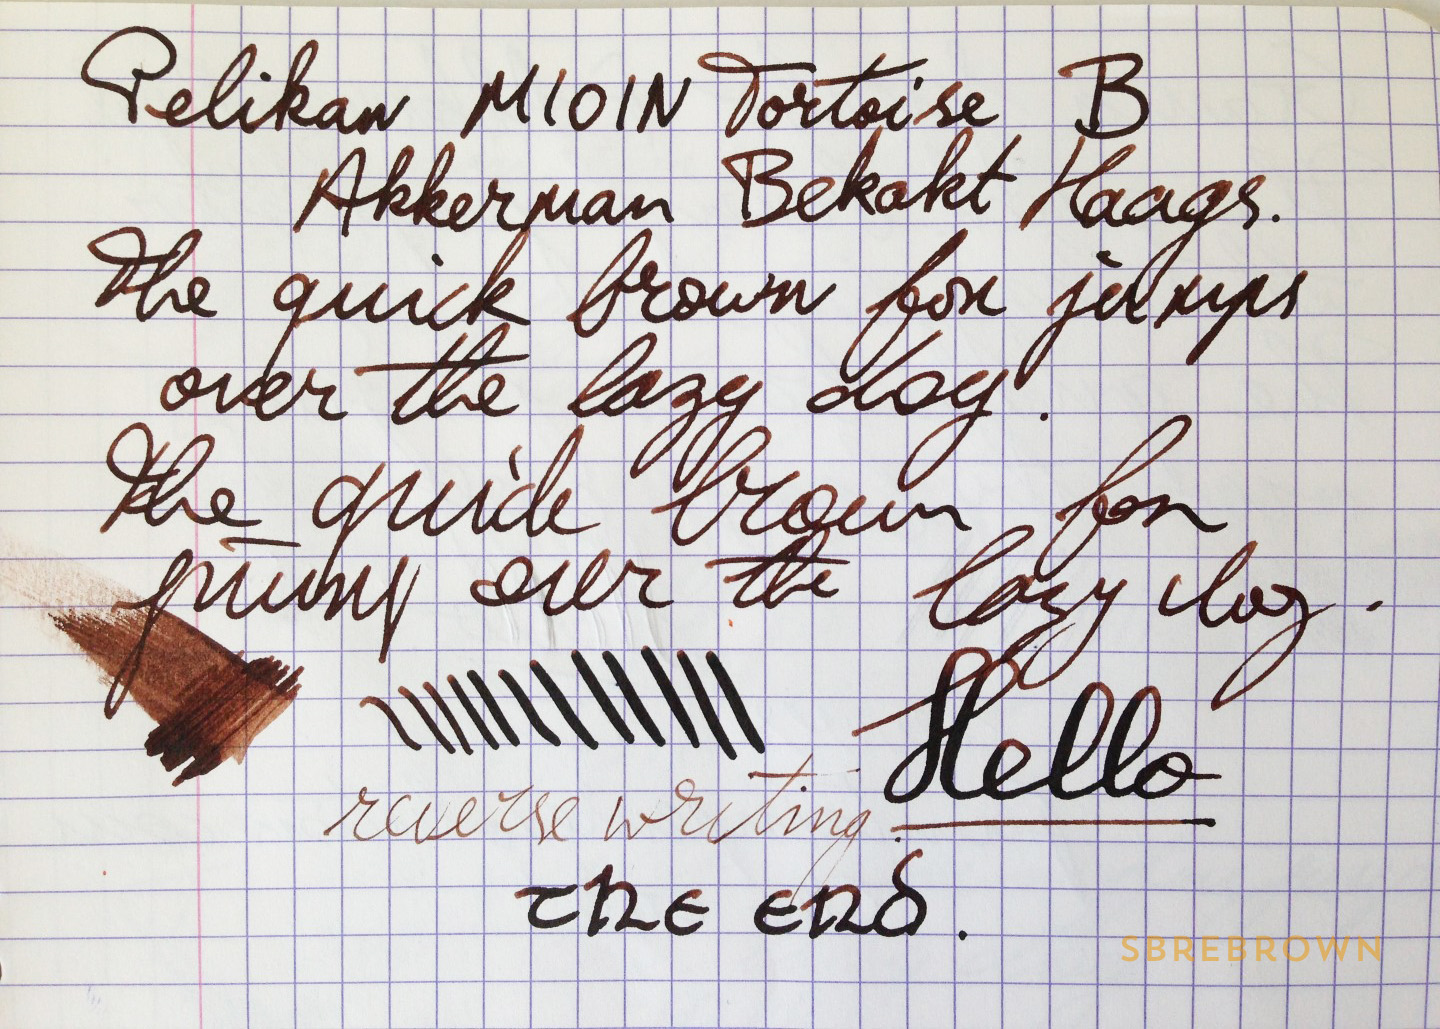 Pelikan M101N Tortoise B
Akkerman Bekakt Haags.
The quick brown fox jumps
over the lazy dog.
The quick brown fox
jumps over the lazy dog.
Hello
reverse writing.
The End.
SBREBROWN